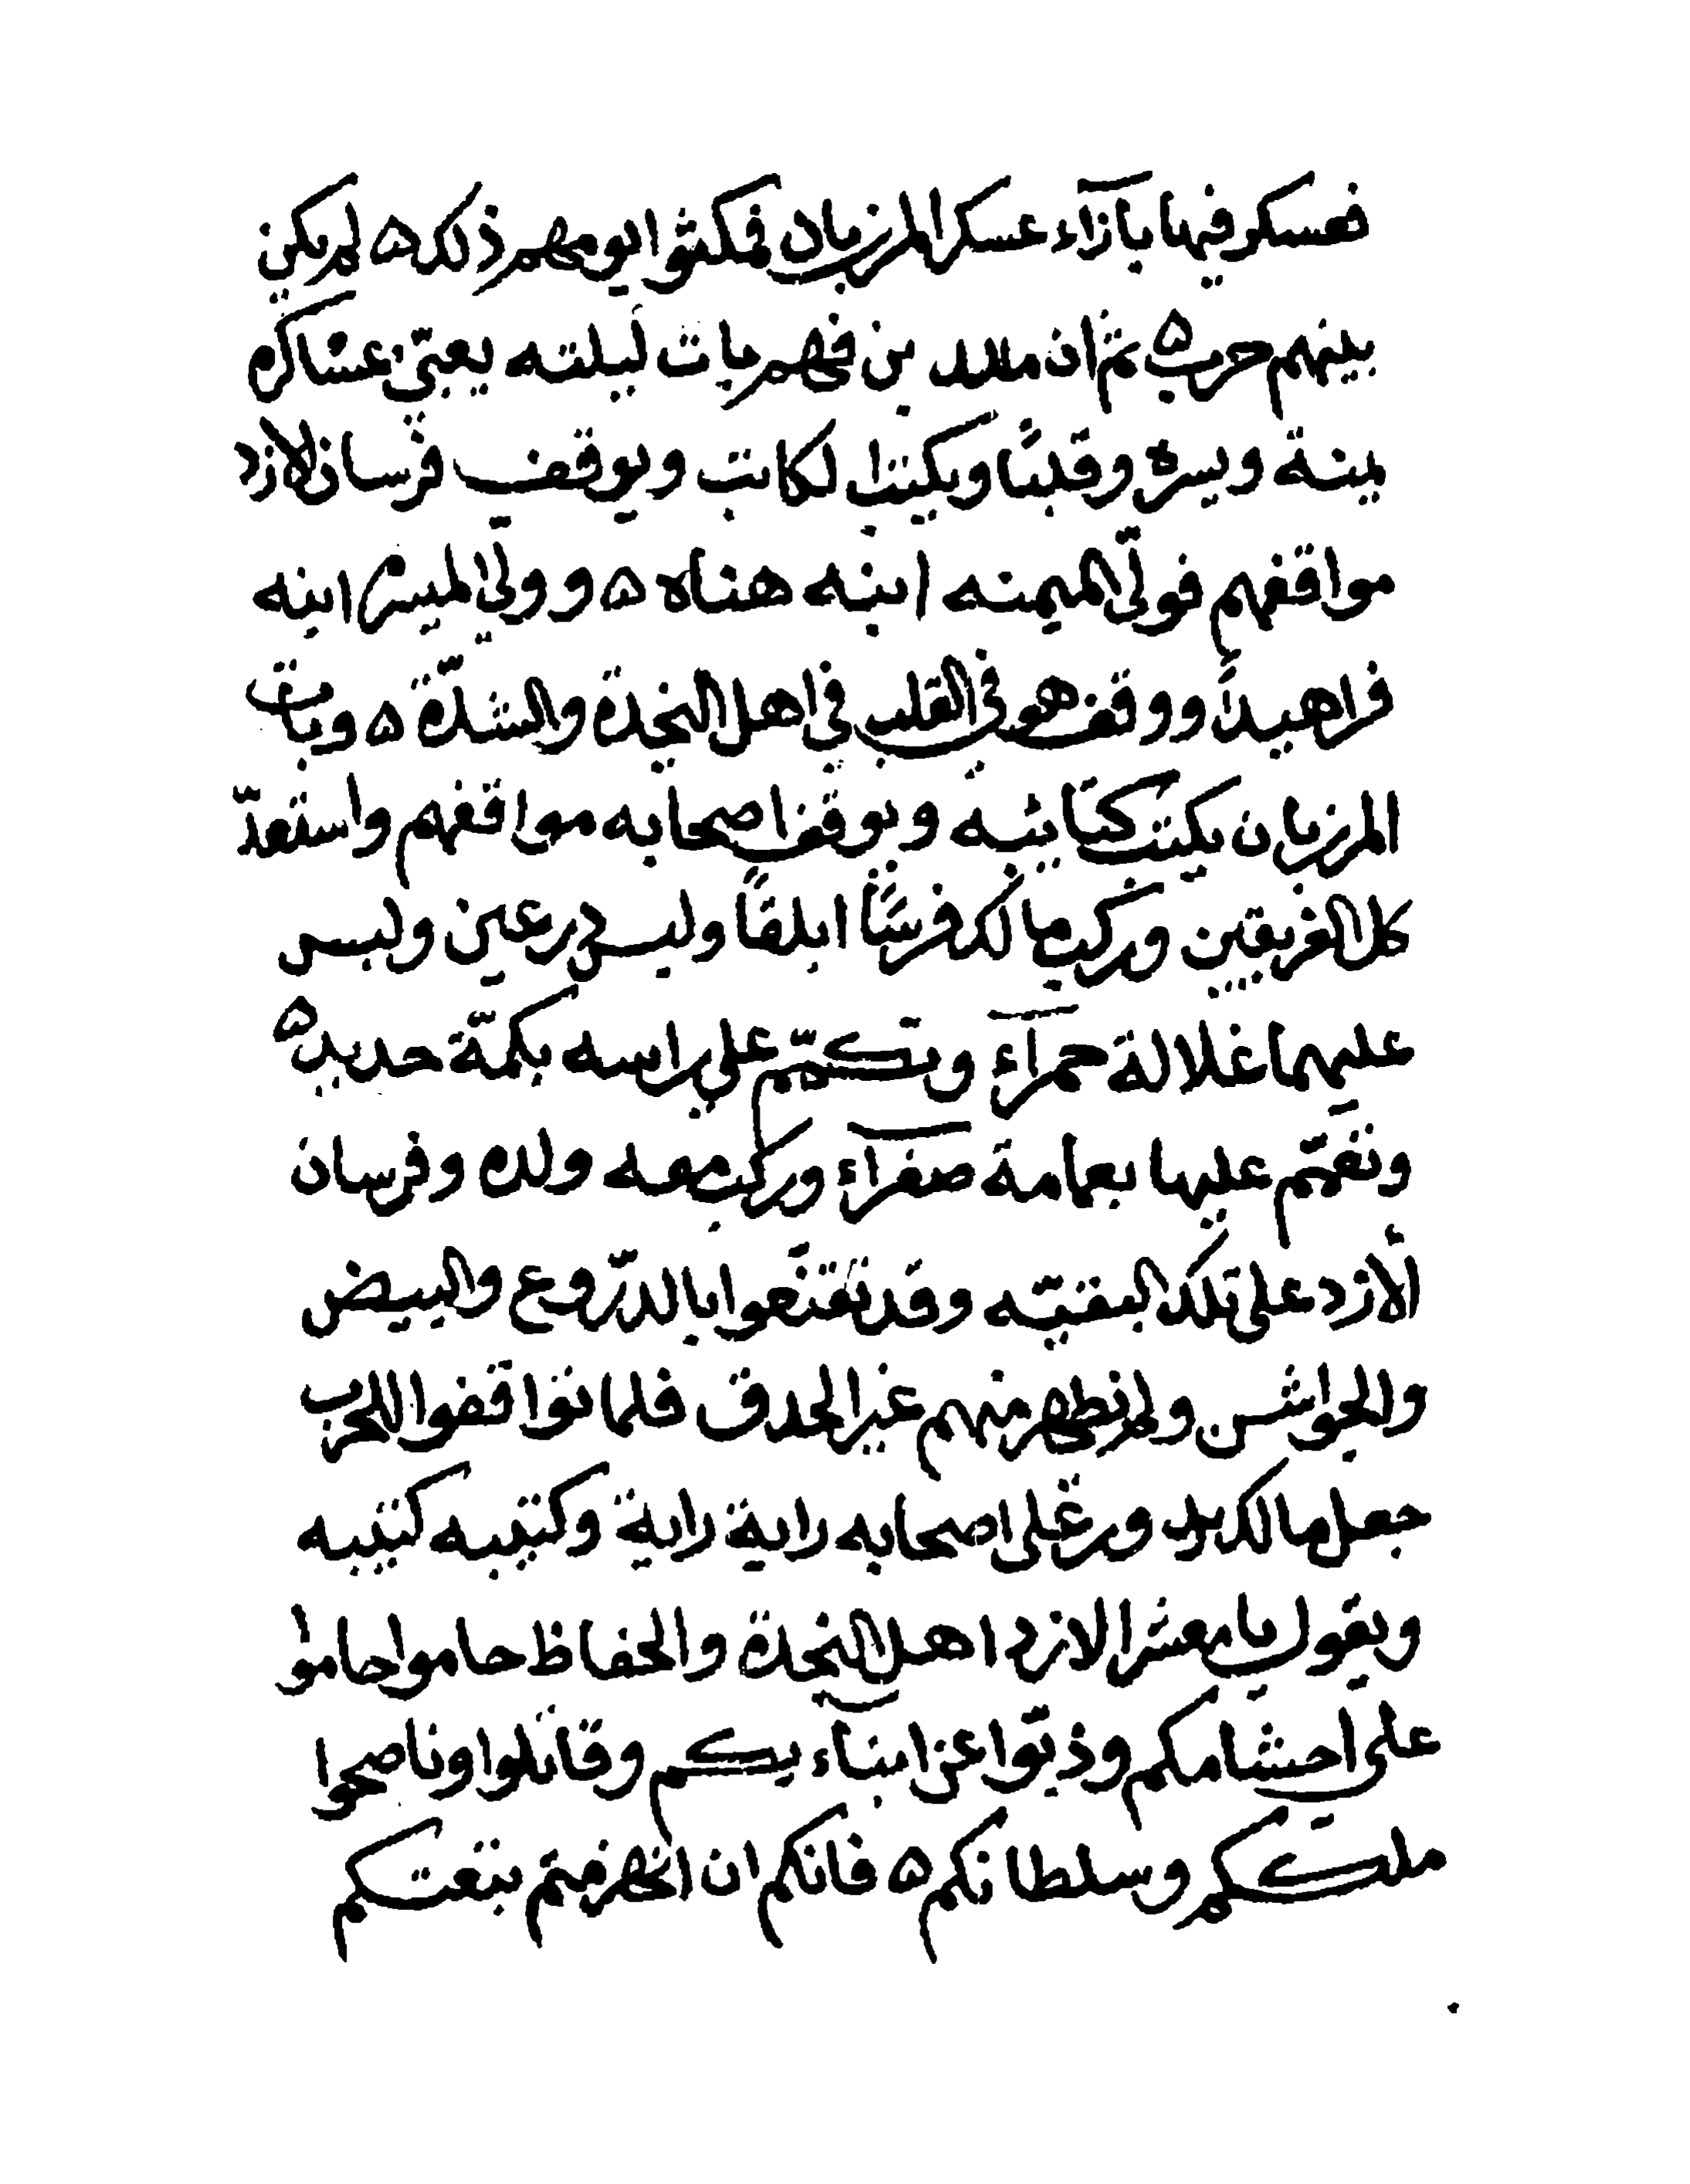 فعسكر فيها بازآء عسكر المرزبان فمكثوا يومهم ذلك ۵ لم يكن
بينهم حرب ۵ ثم ان مالك بن فهم بات ليلته يعبئ عساكره
يمنة ويسره وقلبًا ويكتب الكتائب ويوقف فرسان الازد
مواقفهم فولّى الميمنه ابنه هناه ۵ وولّى الميسره ابنه
فراهيدًا ووقف هو في القلب في اهل النجدة والشدّة ۵ وبات
المرزبان يكتب كتائبه ويوقف اصحابه مواقفهم واستعدّ
كل الفريقين وركب مالك فرسًا ابلقًا ولبس درعين ولبس
عليهما غلالة حمرآء وتكمّم على راسه بكمّة حديد ۵
وتعمّم عليها بعمامة صفرآء وركب معه ولده وفرسان
الأزد على تلك التعبيّه وقد تقنّعوا بالدّروع والبيض
والجواشن ولم يظهر منهم غير الحدق فلما تواقفوا للحرب
جعل مالك يدور على اصحابه راية راية وكتيبه كتيبه
ويقول يا معشر الازد اهل النجدة والحفاظ حاموا حاموا
على احشامكم وذبّوا عن ابناءيكم وقاتلوا وناصحوا
ملككم وسلطانكم ۵ فانكم ان انهزمتم تبعتكم